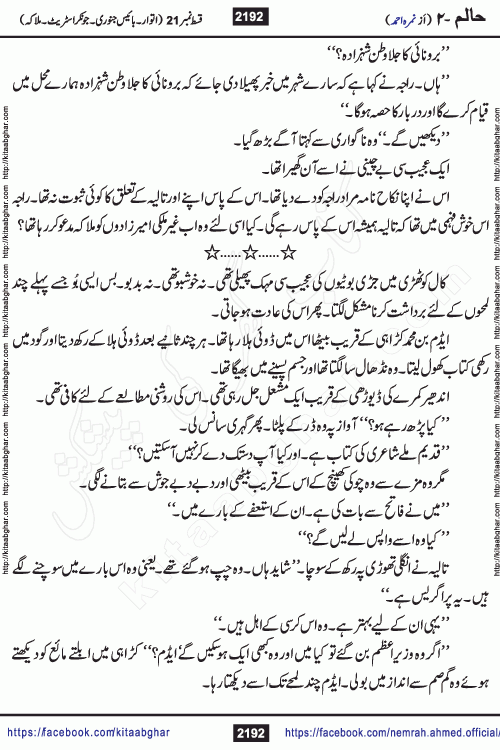 حالم ۔۲ (از نمرہ احمد)
2192
قسط نمبر 21 (اتوار۔ بائیس جنوری۔ جونکر اسٹریٹ۔ ملاکہ)
’’برونائی کا جلاوطن شہزادہ؟‘‘
’’ہاں۔ راجہ نے کہا ہے کہ سارے شہر میں خبر پھیلا دی جائے کہ برونائی کا جلاوطن شہزادہ ہمارے محل میں
قیام کرے گا اور دربار کا حصہ ہو گا۔‘‘
’’دیکھیں گے۔‘‘ وہ ناگواری سے کہتا آگے بڑھ گیا۔
ایک عجیب سی بے چینی نے اسے آن گھیرا تھا۔
اس نے اپنا نکاح نامہ مراد راجہ کو دے دیا تھا۔ اس کے پاس اپنے اور تالیہ کے تعلق کا کوئی ثبوت نہ تھا۔ راجہ
اس خوش فہمی میں تھا کہ تالیہ ہمیشہ اس کے پاس رہے گی۔ کیا اسی لئے وہ اب غیر ملکی امیرزادوں کو ملاکہ مدعو کر رہا تھا؟
☆......☆......☆
کال کوٹھڑی میں جڑی بوٹیوں کی عجیب سی مہک پھیلی تھی۔ نہ خوشبو تھی۔ نہ بدبو۔ بس ایسی بُو جسے پہلے چند
لمحوں کے لئے برداشت کرنا مشکل لگتا۔ پھر اس کی عادت ہو جاتی۔
ایڈم بن محمد کڑاہی کے قریب بیٹھا اس میں ڈوئی ہلا رہا تھا۔ ہر چند ثانیے بعد ڈوئی ہلا کے رکھ دیتا اور گود میں
رکھی کتاب کھول لیتا۔ وہ نڈھال سا لگتا تھا اور جسم پسینے میں بھیگا تھا۔
اندھیر کمرے کی ڈیوڑھی کے قریب ایک مشعل جل رہی تھی۔ اس کی روشنی مطالعے کے لئے کافی تھی۔
’’کیا پڑھ رہے ہو؟‘‘ آواز پہ وہ ڈر کے پلٹا۔ پھر گہری سانس لی۔
’’قدیم ملے شاعری کی کتاب ہے۔ اور کیا آپ دستک دے کر نہیں آ سکتیں؟‘‘
مگر وہ مزے سے وہ چوکی کھینچ کے اس کے قریب بیٹھی اور دبے دبے جوش سے بتانے لگی۔
’’میں نے فاتح سے بات کی ہے۔ ان کے استعفے کے بارے میں۔‘‘
’’کیا وہ اسے واپس لے لیں گے؟‘‘
تالیہ نے انگلی تھوڑی پہ رکھ کے سوچا۔ ’’شاید ہاں۔ وہ چپ ہو گئے تھے۔ یعنی وہ اس بارے میں سوچنے لگے
ہیں۔ یہ پراگریس ہے۔‘‘
’’یہی ان کے لیے بہتر ہے۔ وہ اس کرسی کے اہل ہیں۔‘‘
’’اگر وہ وزیراعظم بن گئے تو کیا میں اور وہ کبھی ایک ہو سکیں گے‘ ایڈم؟‘‘ کڑاہی میں ابلتے مائع کو دیکھتے
ہوئے وہ گم صم سے انداز میں بولی۔ ایڈم چند لمحے تک اسے دیکھتا رہا۔
http://kitaabghar.com http://kitaabghar.com http://kitaabghar.com http://kitaabghar.com
http://kitaabghar.com http://kitaabghar.com http://kitaabghar.com http://kitaabghar.com
https://facebook.com/kitaabghar
2192
https://facebook.com/nemrah.ahmed.official/